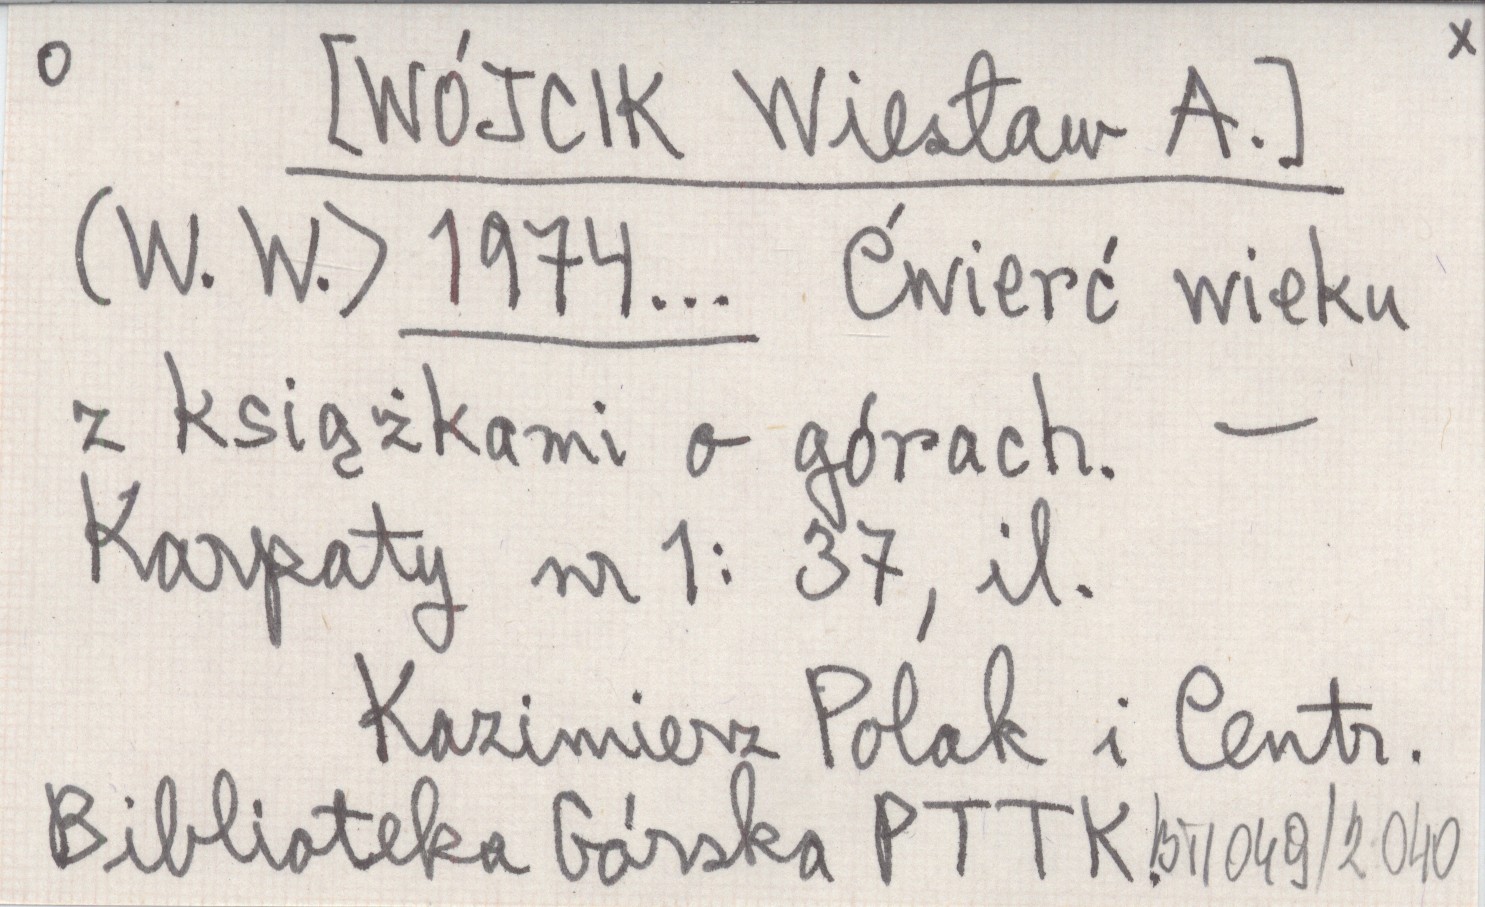 o [WÓJCIK Wiesław A.] x
(W. W.) 1974... Ćwierć wieku
z książkami o górach. —
Karpaty nr 1: 37, il.
Kazimierz Polak i Centr.
Biblioteka Górska PTTK. BT/049/2040